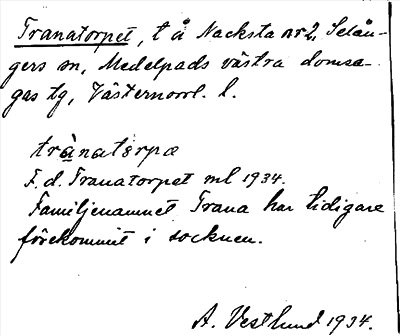 Tranatorpet, t å Nacksta nr 2, Selån-
gers sn, Medelpads västra domsa-
gas tg, Västernorrl. l.
trànatɘrpa
F. d. Tranatorpet ml 1934.
Familjenamnet Trana har tidigare
förekommit i socknen.
A. Vestlund 1934.